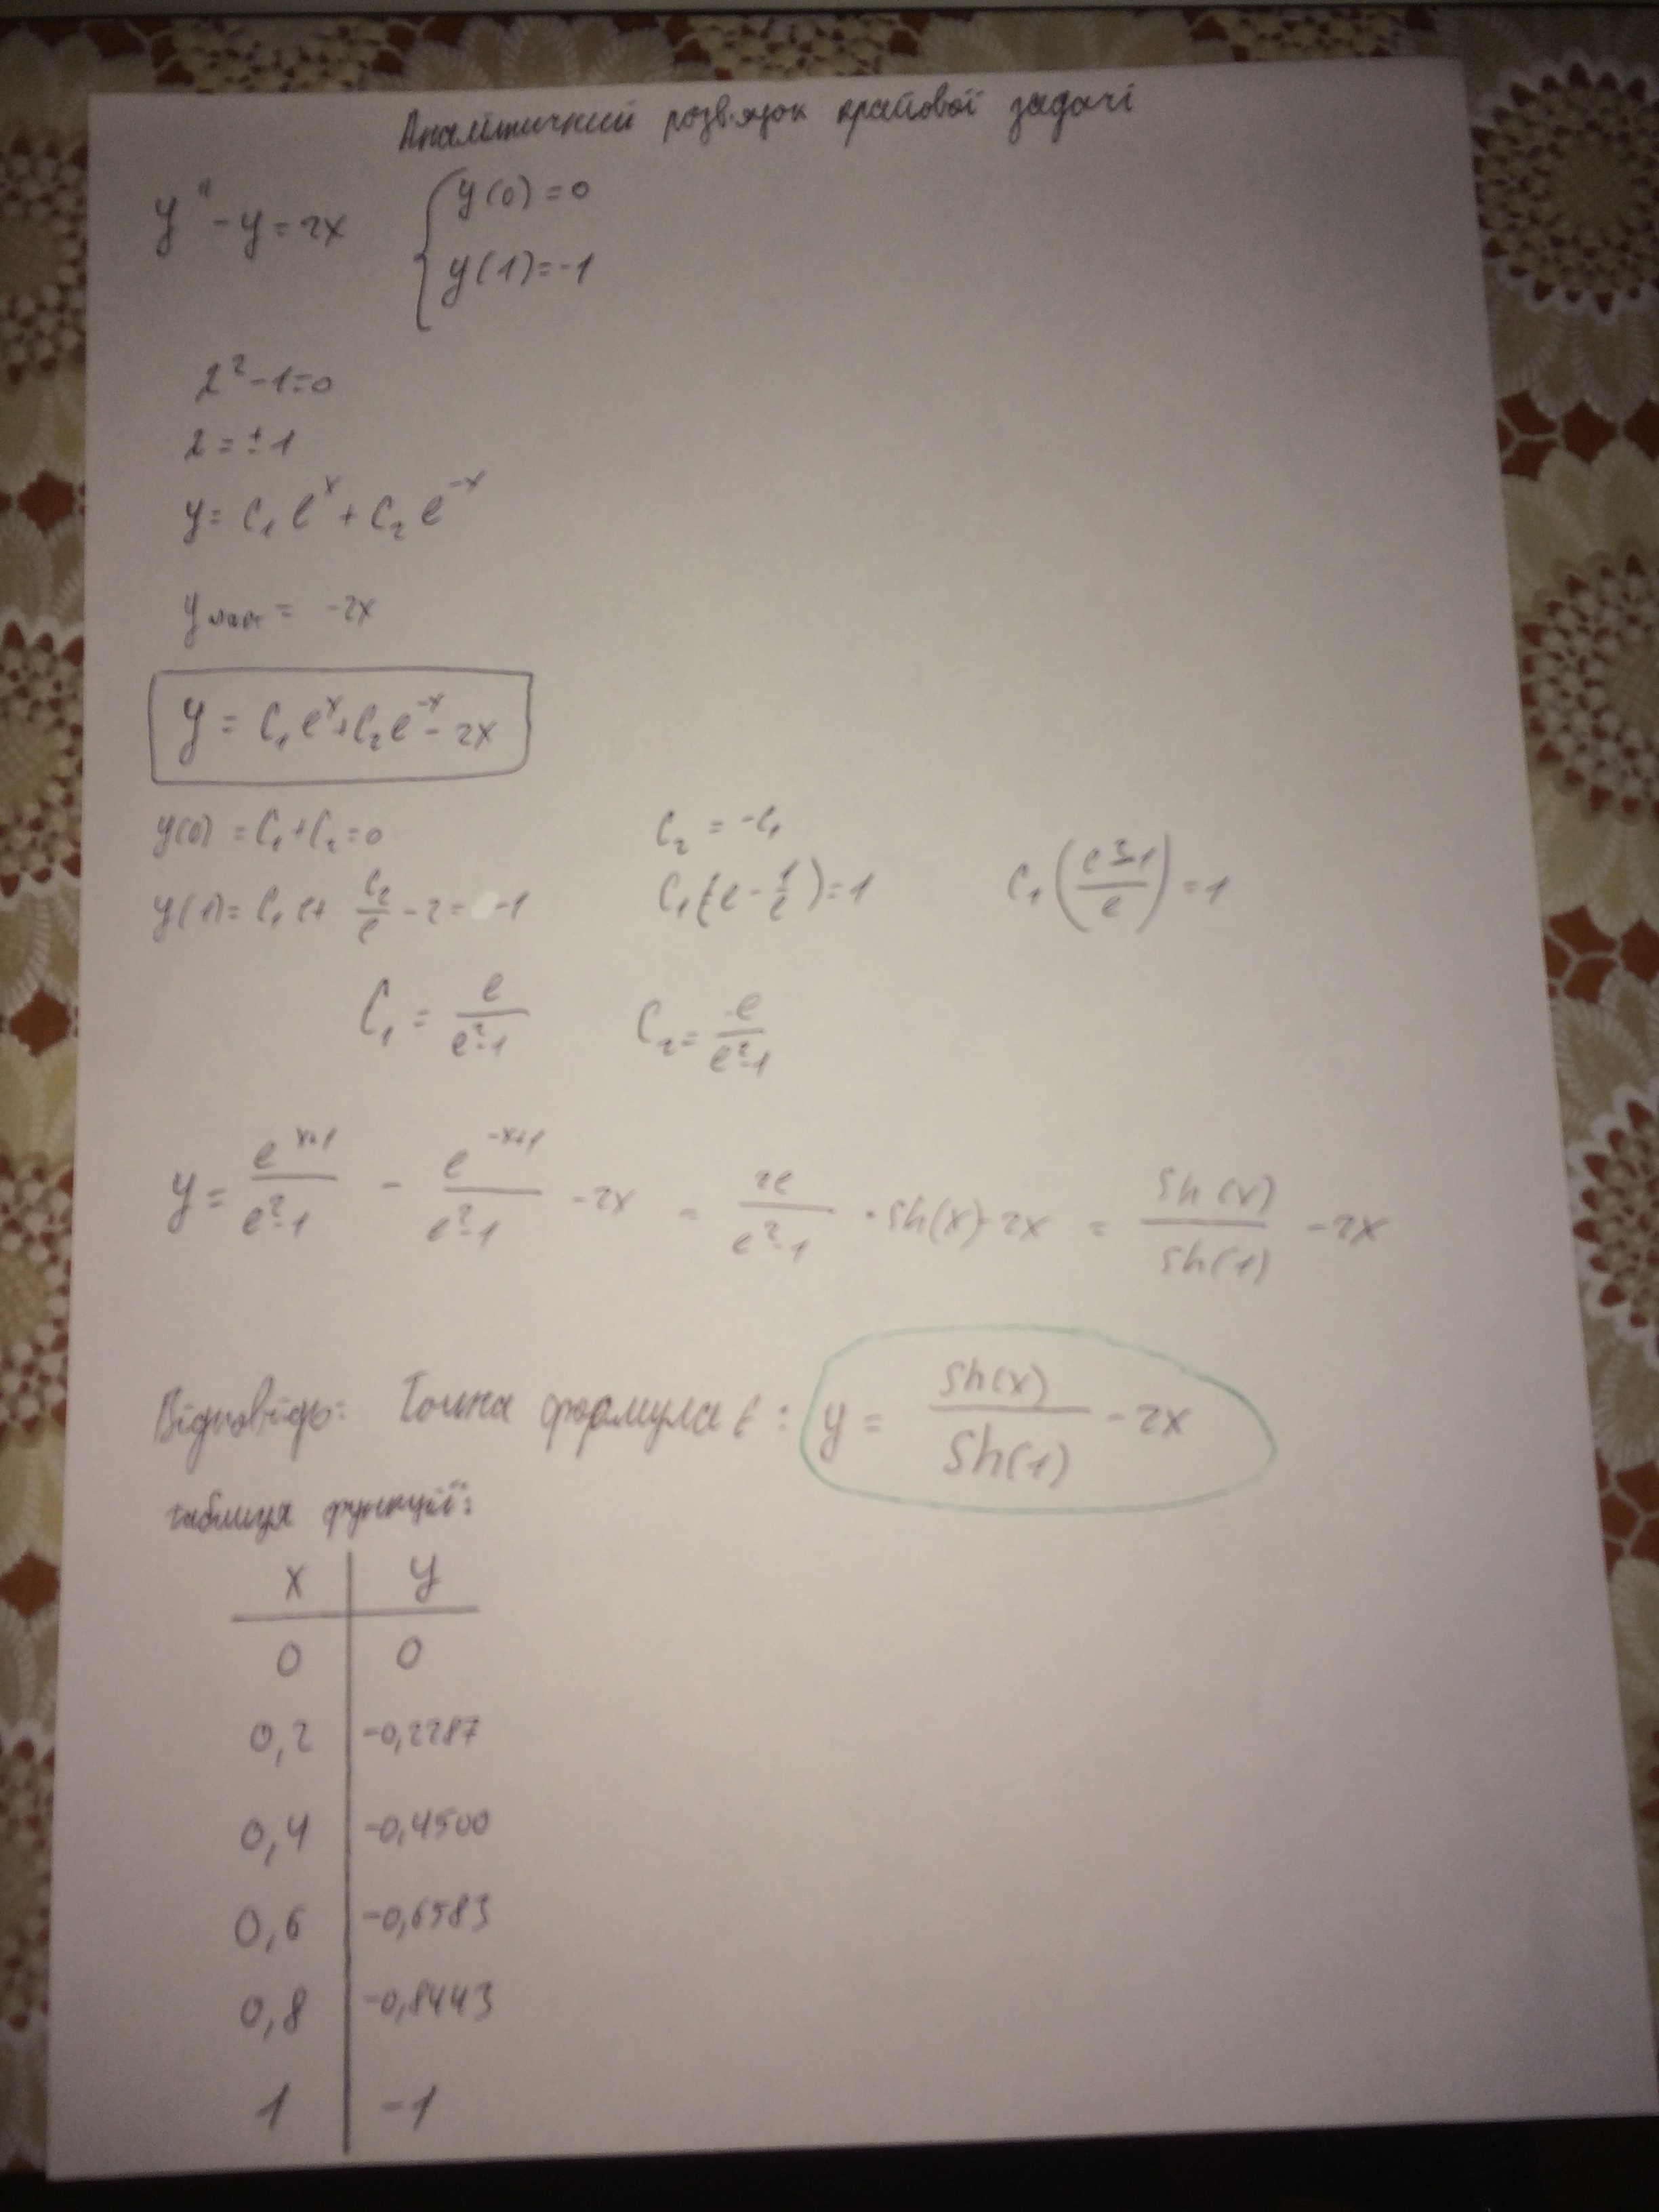 Аналітичний розв'язок крайової задачі
y'' - y = 2x { y(0) = 0
y(1) = -1
λ² - 1 = 0
λ = ± 1
y = C₁ e^x + C₂ e^-x
y част = -2x
y = C₁ e^x + C₂ e^-x - 2x
y(0) = C₁ + C₂ = 0 C₂ = -C₁
y(1) = C₁ e + C₂/e - 2 = -1 C₁ (e - 1/e) = 1 C₁ ((e² - 1)/e) = 1
C₁ = e/(e² - 1) C₂ = -e/(e² - 1)
y = e^(x+1)/(e² - 1) - e^(-x+1)/(e² - 1) - 2x = 2e/(e² - 1) · sh(x) - 2x = sh(x)/sh(1) - 2x
Відповідь: Точна формула є: y = sh(x)/sh(1) - 2x
таблиця функції:
x y
0 0
0,2 -0,2287
0,4 -0,4500
0,6 -0,6583
0,8 -0,8443
1 -1